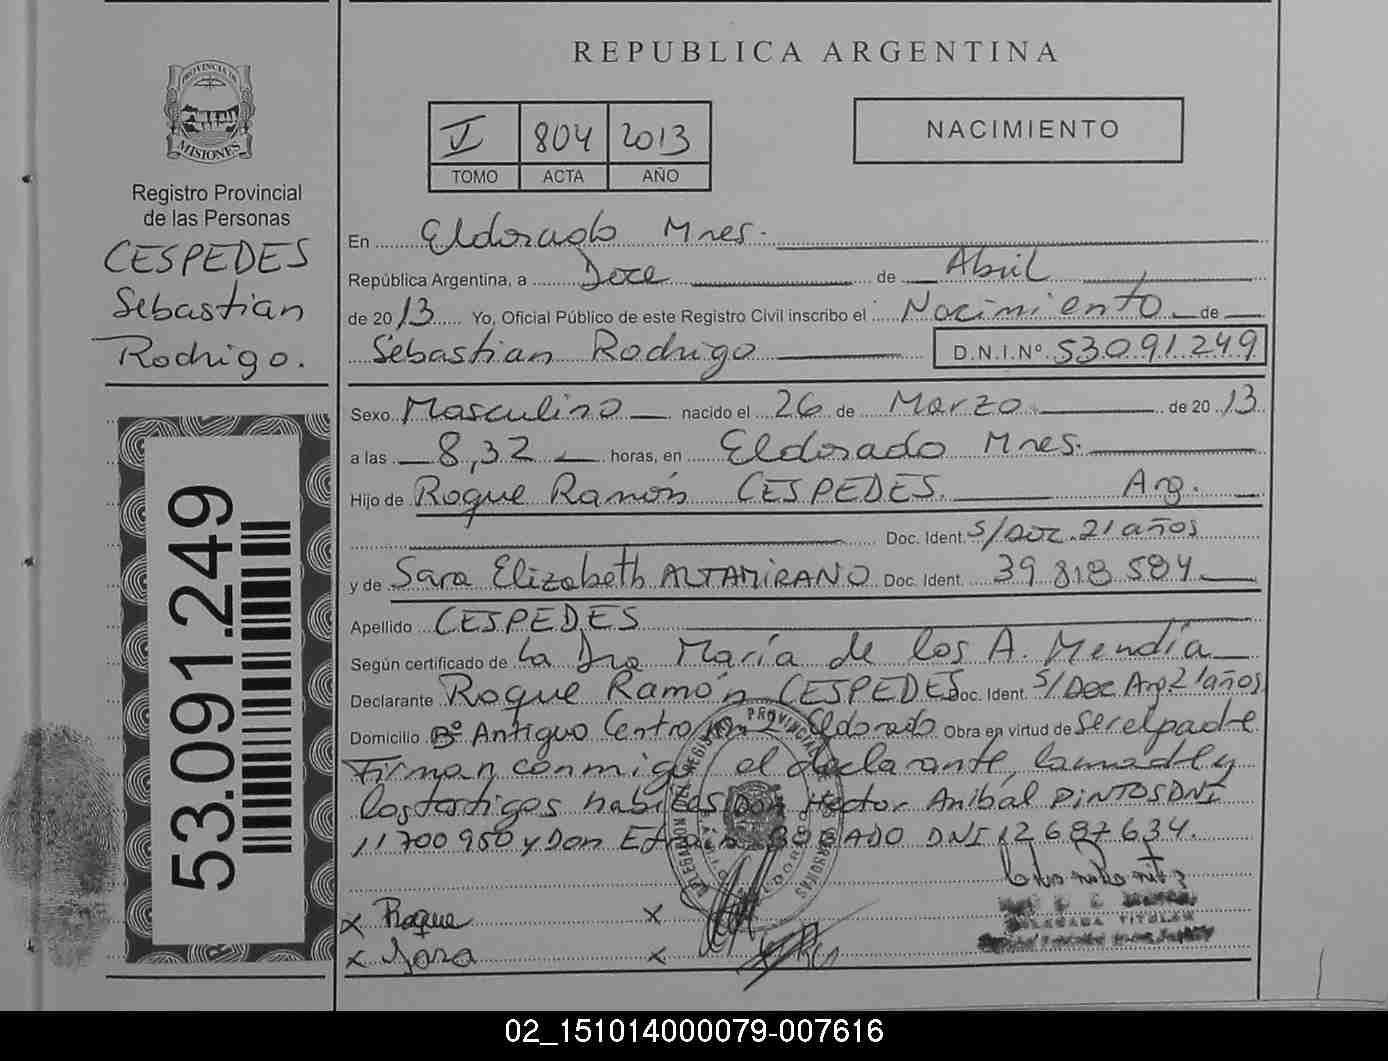 PROVINCIA DE
MISIONES
Registro Provincial
de las Personas
CESPEDES
Sebastian
Rodrigo.
53.091.249
REPUBLICA ARGENTINA
V 804 2013
TOMO ACTA AÑO
NACIMIENTO
En Eldorado Mnes.
República Argentina, a Doce de Abril
de 2013 Yo, Oficial Público de este Registro Civil inscribo el Nacimiento de
Sebastian Rodrigo D.N.I.Nº 53.091.249
Sexo Masculino nacido el 26 de Marzo de 2013
a las 8,32 horas, en Eldorado Mnes.
Hijo de Roque Ramón CESPEDES. Arg.
Doc. Ident. S/Doc. 21 años
y de Sara Elizabeth ALTAMIRANO Doc. Ident. 39 818 584
Apellido CESPEDES
Según certificado de La Dra María de los A. Mendía
Declarante Roque Ramón CESPEDES Doc. Ident. S/Doc Arg 21 años
Domicilio Bº Antiguo Centro Eldorado Obra en virtud de Ser el padre
Firman conmigo el declarante, la madre y
los testigos habiles Don Hector Anibal PINTOS DNI
11 700 950 y Don Efrain BOBADO DNI 12 687 634.
x Roque x
x Sara x
DELEGADA TITULAR
02_151014000079-007616